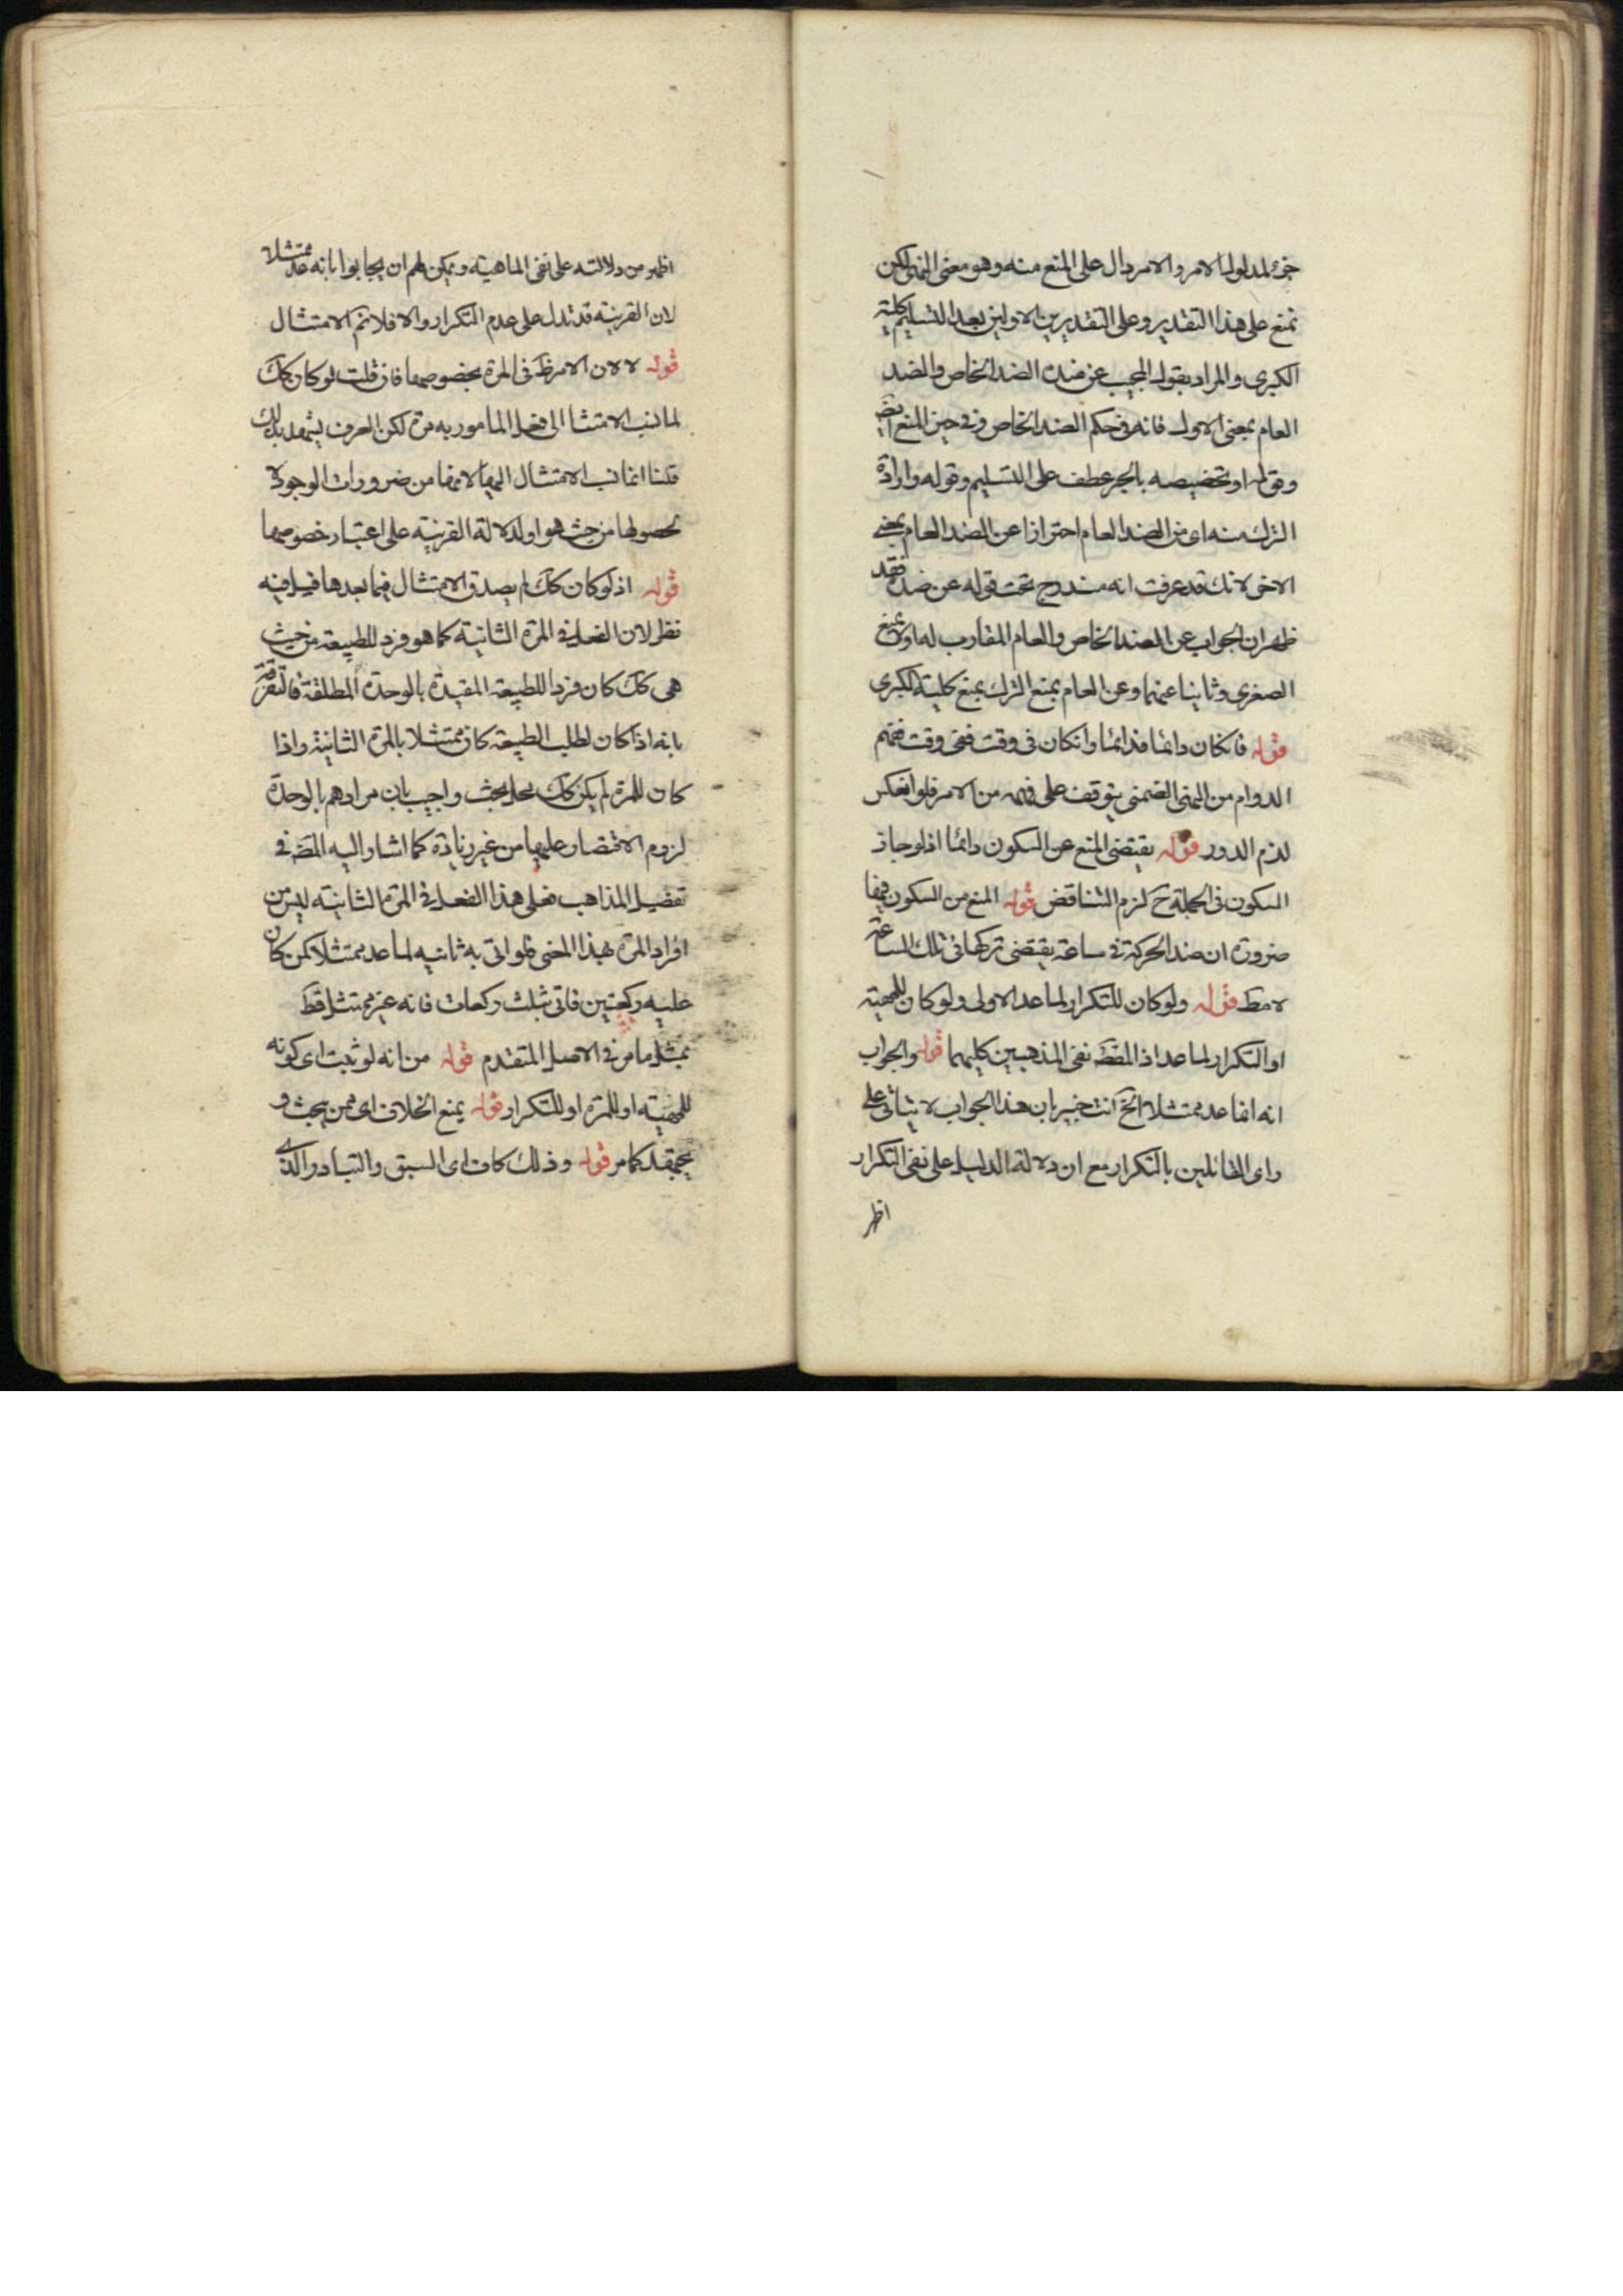 جزء لمدلول الامر والامر دال على المنع منه وهو معنى النهى لكن
نمنع على هذا التقدير وعلى التقديرين الاولين بعد التسليم كلية
الكبرى والمراد بقول المجيب عن ضده الضد الخاص والضد
العام بمعنى الاول فانه فى حكم الضد الخاص وفى حيز المنع ايض
وقوله او تخصيصه بالجر عطف على التسليم وقوله وارادة
الترك منه اى من الضد العام احترازا عن الضد العام بمعنى
الاخر لانك قد عرفت انه مندرج تحت قوله عن ضده فقد
ظهر ان الجواب عن الضد الخاص والعام المقارب له اولا بمنع
الصغرى وثانيا عنهما وعن العام بمنع الترك بمنع كلية الكبرى
قوله فانكان دائما فدائما وانكان فى وقت ففى وقت ففهم
الدوام من النهى الضمنى يتوقف على فهمه من الامر فلو انعكس
لزم الدور قوله يقتضى المنع عن السكون دائما اذ لو جاز
السكون فى الجملة ح لزم التناقض قوله المنع من السكون فيها
ضرورة ان ضد الحركة فى ساعة يقتضى تركها فى تلك الساعة
لا مط قوله ولو كان للتكرار لما عد الاولى ولو كان للمهية
او التكرار لما عد اذ المقصَ نفى المذهبين كليهما قوله والجواب
انه انما عد ممتثلا الخ انت خبير بان هذا الجواب لا يتاتى على
راى القائلين بالتكرار مع ان دلالة الدليل على نفى التكرار
اظهر
اظهر من دلالته على نفى الماهية ويمكن لهم ان يجابوا بانه عد ممتثلا
لان القرينة قد تدل على عدم التكرار والا فلا نم الامتثال
قوله لا لان الامر ظَ فى المرة بخصوصها فان قلت لو كان كك
لما نسب الامتثال الى فعل المامور به مرة لكن العرف يشهد بذلك
قلنا انما نسب الامتثال اليها لانها من ضرورات الوجود لا
لحصولها من حيث هو او لدلالة القرينة على اعتبار خصوصها
قوله اذ لو كان كك لم يصدق الامتثال فيما بعدها قيل فيه
نظر لان الفعل فى المرة الثانية كما هو فرد للطبيعة من حيث
هى كك كان فردا للطبيعة المقيدة بالوحدة المطلقة فالتفرقة
بانه اذا كان لطلب الطبيعة كان ممتثلا بالمرة الثانية واذا
كان للمرة لم يكن كك محل بحث واجيب بان مرادهم بالوحدة
لزوم الاقتصار عليها من غير زيادة كما اشار اليه المصَ فى
تفصيل المذاهب فعلى هذا الفعل فى المرة الثانية ليس من
افراد المرة بهذا المعنى فلو اتى به ثانيه لما عد ممتثلا كمن كان
عليه ركعتين فاتى بثلث ركعات فانه غير ممتثل قط
بمثل ما مر فى الاصل المتقدم قوله من انه لو ثبت اى كونه
للمهية او للمرة او للتكرار قوله يمنع الخلاف اى ممن يبحث و
يجتهد كما مر قوله وذلك كاف اى السبق والتبادر الذى